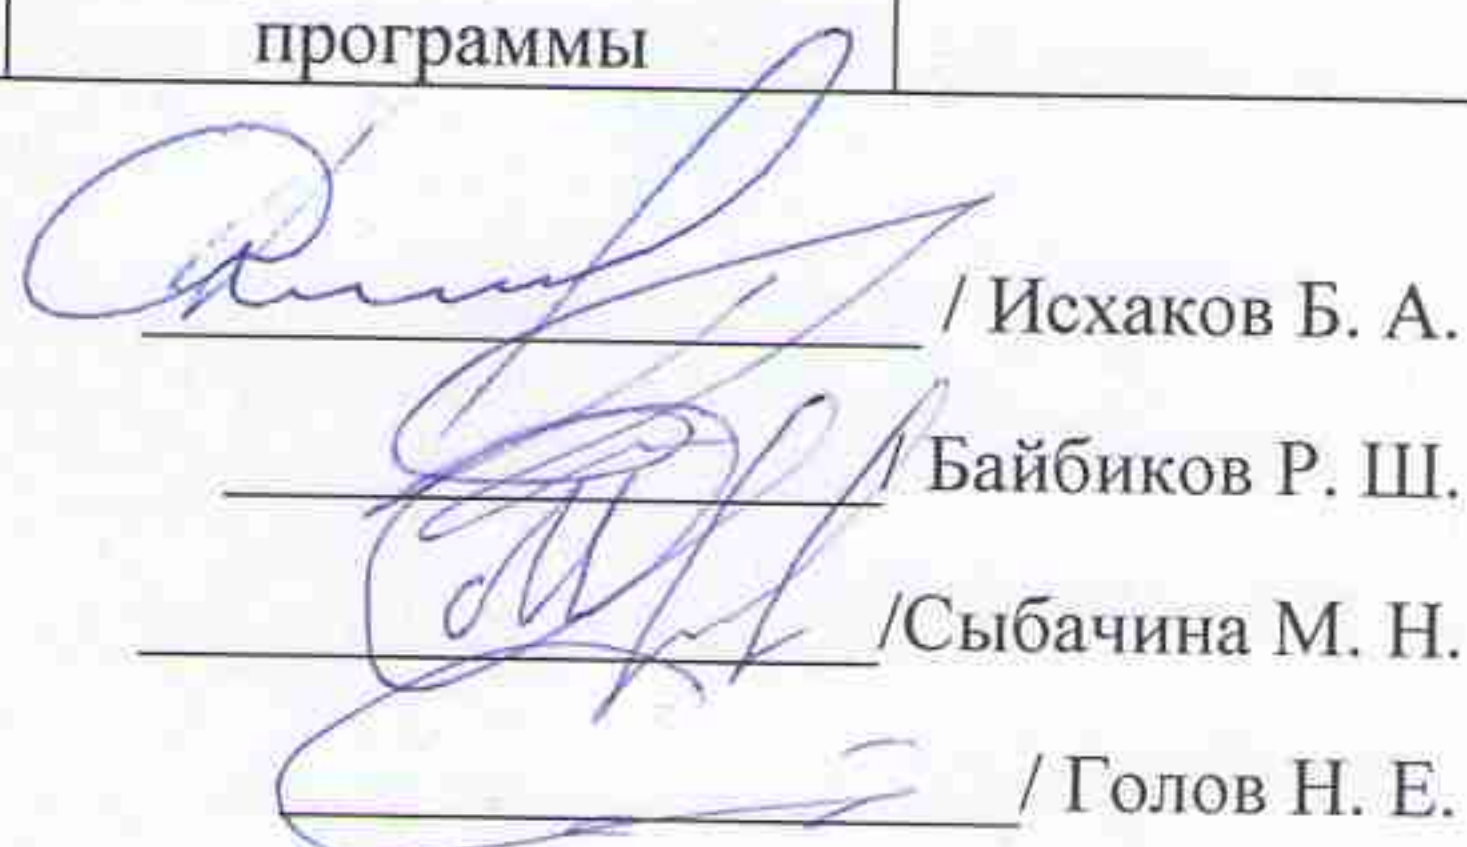 программы
/ Исхаков Б. А.
/ Байбиков Р. Ш.
/Сыбачина М. Н.
/ Голов Н. Е.